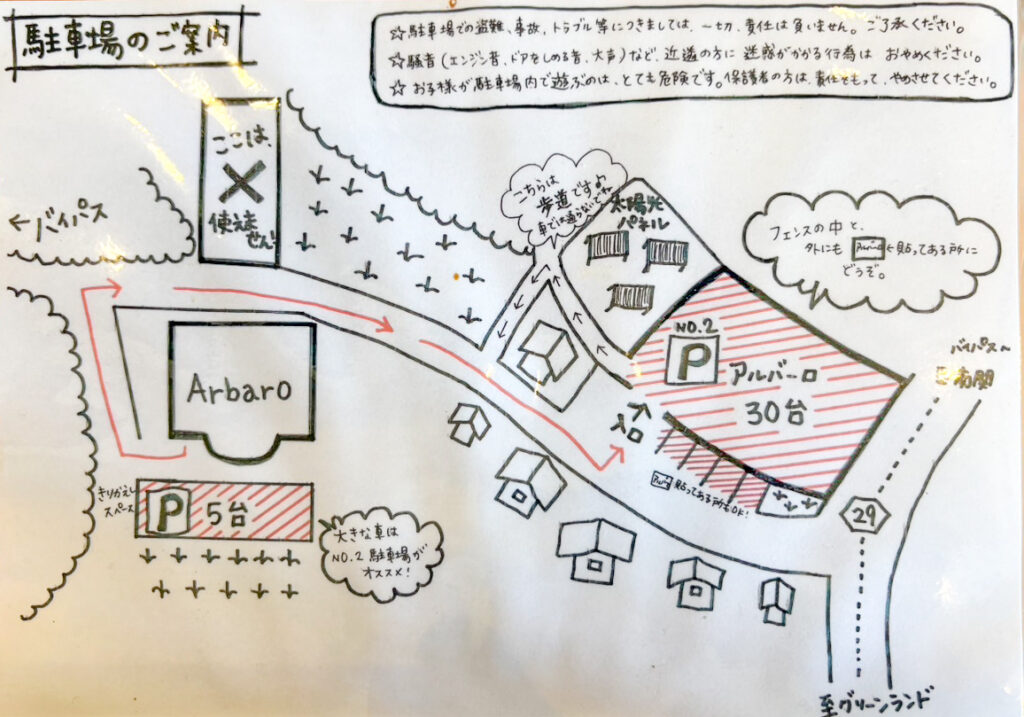 駐車場のご案内
☆駐車場での盗難、事故、トラブル等につきましては、一切、責任は負いません。ご了承ください。
☆騒音(エンジン音、ドアをしめる音、大声)など、近隣の方に迷惑がかかる行為はおやめください。
☆お子様が駐車場内で遊ぶのは、とても危険です。保護者の方は、責任をもって、やめさせてください。
ここは、
×
使えま
せん!
←バイパス
こちらは
歩道です♪
車では通らないでね
太陽光
パネル
フェンスの中と、
外にも
←貼ってある所に
どうぞ。
NO.2
P
アルバーロ
30台
バイパス〜
至南関
Arbaro
入口
貼ってある所もOK!
きりかえし
スペース
P
5台
大きな車は
NO.2 駐車場が
オススメ!
29
至グリーンランド